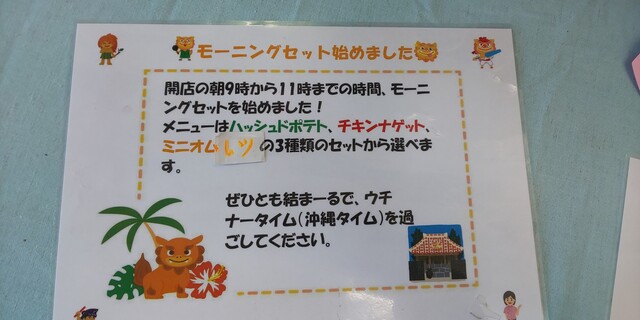 モーニングセット始めました
開店の朝9時から11時までの時間、モーニ
ングセットを始めました！
メニューはハッシュドポテト、チキンナゲット、
ミニオムレツの3種類のセットから選べま
す。
ぜひとも結まーるで、ウチ
ナータイム（沖縄タイム）を過
ごしてください。